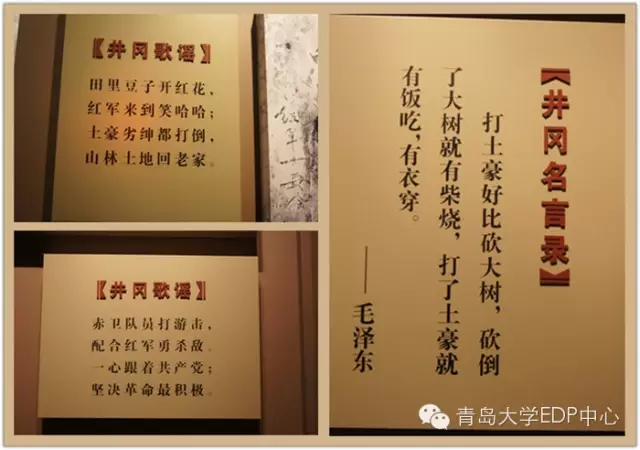 【井冈歌谣】
田里豆子开红花，
红军来到笑哈哈；
土豪劣绅都打倒，
山林土地回老家。
【井冈歌谣】
赤卫队员打游击，
配合红军勇杀敌。
一心跟着共产党；
坚决革命最积极。
【井冈名言录】
打土豪好比砍大树，砍倒
了大树就有柴烧，打了土豪就
有饭吃，有衣穿。
——毛泽东
青岛大学EDP中心